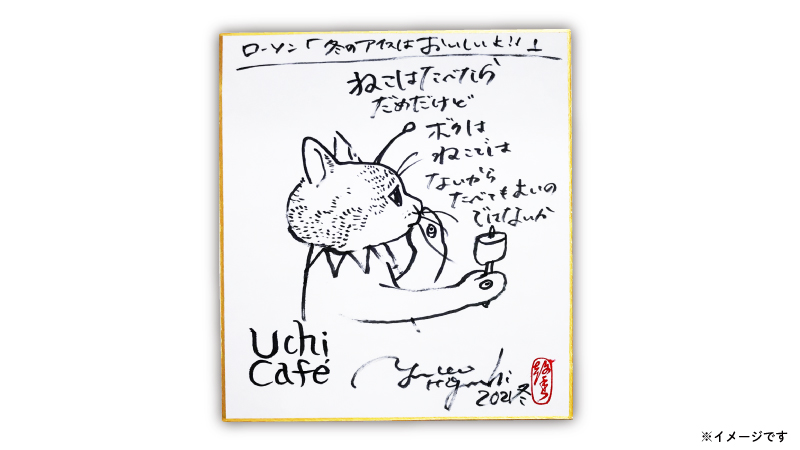 ローソン「冬のアイスはおいしいよ!!」
ねこはたべたら
だめだけど
ボクは
ねこでは
ないから
たべてもよいの
ではないか
Uchi
Café
Yuko
Higuchi
2021冬
※イメージです